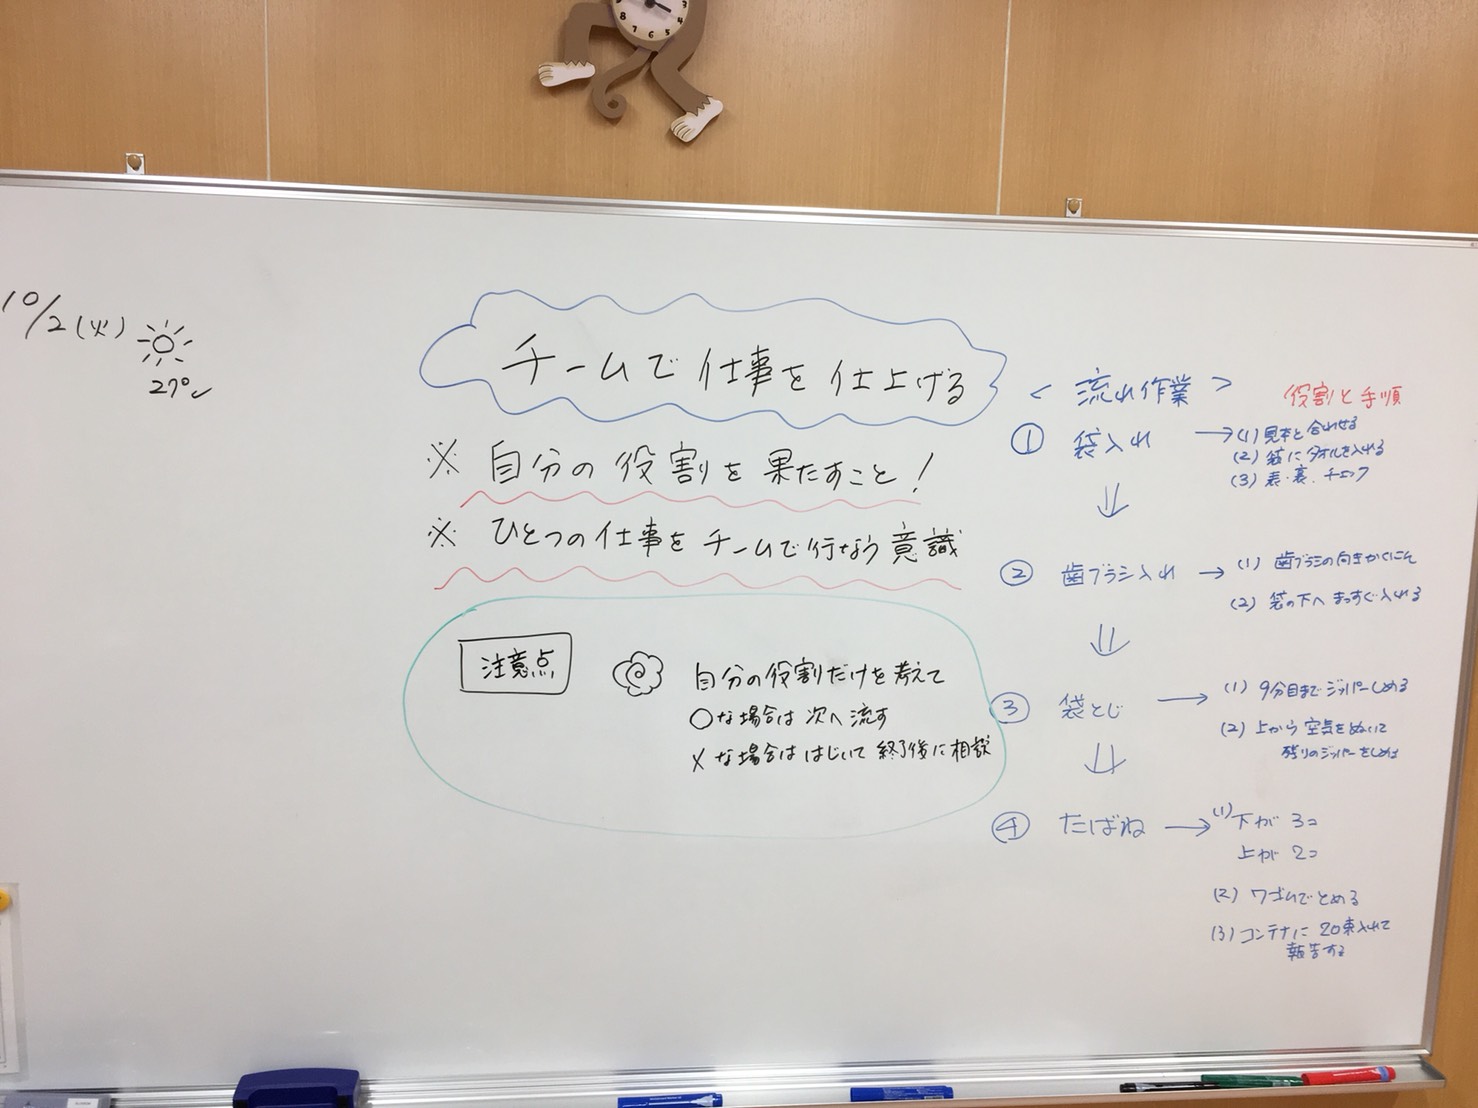 10/2(火)
27℃
チームで仕事を仕上げる
※ 自分の役割を果たすこと!
※ ひとつの仕事をチームで行なう意識
注意点
自分の役割だけを考えて
○な場合は次へ流す
×な場合ははじいて終了後に相談
<流れ作業>
役割と手順
① 袋入れ →(1)見本と合わせる
(2)袋にタオルを入れる
(3)表・裏.チェック
② 歯ブラシ入れ →(1)歯ブラシの向きかくにん
(2)袋の下へまっすぐ入れる
③ 袋とじ →(1)9分目までジッパーしめる
(2)上から空気をぬいて
残りのジッパーをしめる
④ たばね →(1)下が3コ
上が2コ
(2)ワゴムでとめる
(3)コンテナに20束入れて
報告する
8
7
6
5
4
3